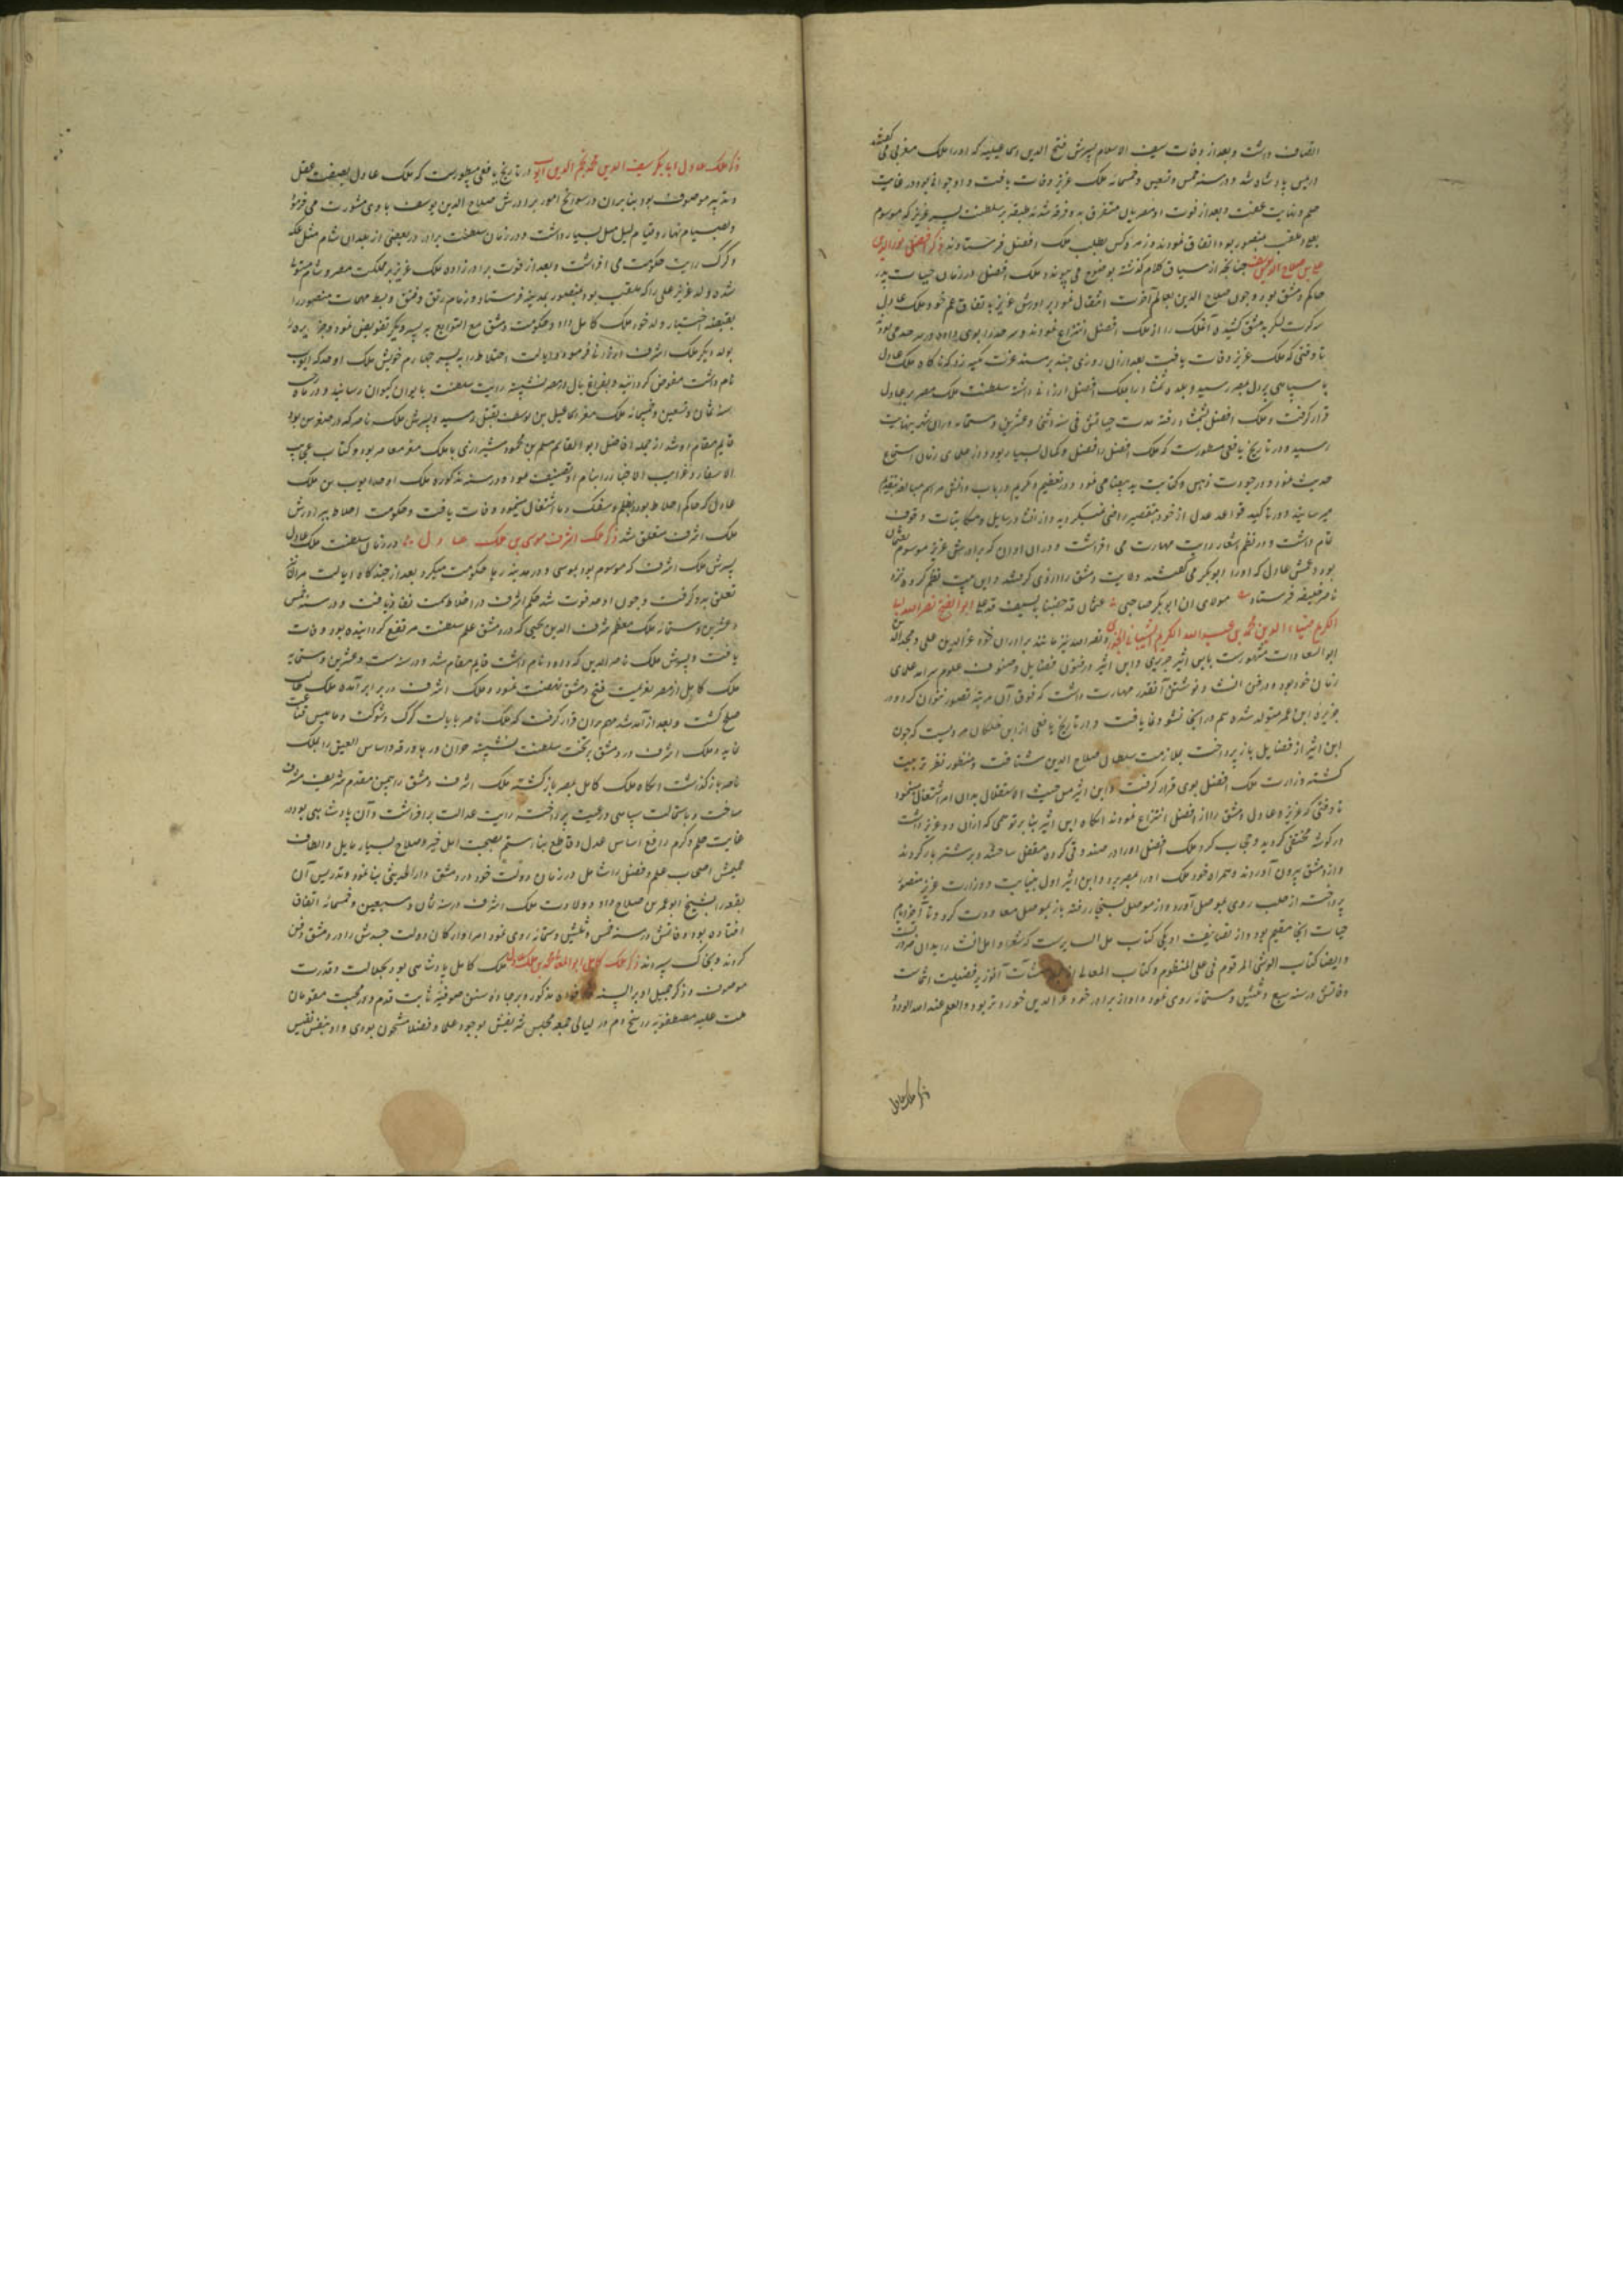 انصاف داشت و بعد از وفات سیف الاسلام پسرش فتح الدین اسماعیل که او را ملک معز می گفتند
در یمن پادشاه شد و در سنه خمس و تسعین و خمسمائه ملک عزیز وفات یافت و او جوانی بود در غایت
حلم و نهایت عفت و بعد از فوت او مصریان متفرق به دو فرقه شدند طبقه بر سلطنت پسر عزیز که موسوم
بعلی و ملقب بمنصور بود اتفاق نمودند و زمره کس بطلب ملک افضل فرستادند ذکر افضل نور الدین
علی بن صلاح الدین یوسف چنانچه از سیاق کلام گذشته بوضوح می پیوندد ملک افضل در زمان حیات پدر
حاکم دمشق بود و چون صلاح الدین بعالم آخرت انتقال نمود برادرش عزیز باتفاق عم خود ملک عادل
سه کرت لشکر بدمشق کشیده آن ملک را از ملک افضل انتزاع نمودند و سرحد را بوی داده در سرحد می بود
تا وقتی که ملک عزیز وفات یافت بعد از آن روزی چند بر مسند عزت تکیه زد که ناگاه ملک عادل
با سپاهی پر دل بمصر رسید و بلده را بملک افضل ارزانی داشته سلطنت ملک مصر بر عادل
قرار گرفت و ملک افضل رفته مدت حیاتش فی سنه اثنی و عشرین و ستمائه بنهایت
رسید و در تاریخ یافعی مسطورست که ملک افضل را فضل و کمال بسیار بود و از علمای زمان استماع
حدیث نمود و در جودت ذهن و کتابت ید بیضا می نمود و در تعظیم و تکریم ارباب دانش مراسم مبالغه بتقدیم
میرسانید و در تاکید قواعد عدل از خود بتقصیر راضی نمیگردید و از انشاء رسایل و مکاتبات وقوف
تمام داشت و در نظم اشعار رایت مهارت می افراشت و در آن اوان که برادرش عزیز موسوم بعثمان
بود و عمش عادل که او را ابوبکر می گفتند ولایت دمشق را از وی گرفتند و این بیت نظم کرده نزد
ناصر خلیفه فرستاد مولای ان ابوبکر و صاحبه عثمان قد غصبا بالسیف حق علی ابو الفتح نصر الله بن
الکریم ضیاء الدین محمد بن عبد الله الکریم الشیبانی الجزری و نصر الله نیز مانند برادران خود عز الدین علی و مجد الدین
ابو السعادات مشهورست بابن اثیر جزری و ابن اثیر در فنون فضایل و صنوف علوم سرآمد علمای
زمان خود بود و در فن انشا و نوشتن آنقدر مهارت داشت که فوق آن مرتبه تصور نتوان کرد و در
جزیره ابن عمر متولد شده هم در آنجا نشو و نما یافت و در تاریخ یافعی از ابن خلکان مرویست که چون
ابن اثیر از فضایل باز پرداخت بملازمت سلطان صلاح الدین شتافت و منظور نظر تربیت
گشته وزارت ملک افضل بوی قرار گرفت و ابن اثیر من حیث الاستقلال بدان امر اشتغال مینمود
تا وقتی که عزیز و عادل دمشق را از افضل انتزاع نمودند آنگاه ابن اثیر بنا بر توهمی که از آن دو عزیز داشت
در گوشه مختفی گردید و حاجب ملک افضل او را در صندوقی کرده مقفل ساختند و بر شتر بار کردند
و از دمشق بیرون آوردند و همراه خود ملک او را بمصر برد و ابن اثیر اول بنیابت وزارت عزیز منصور
پرداخت از حلب روی بموصل آورد و از موصل بسنجار رفته باز بموصل معاودت کرد و تا آخر ایام
حیات آنجا مقیم بود و از تصانیف او یکی کتاب مثل السایر ست که شعرا و اهل انشا را بدان
و ایضا کتاب الوشی المرقوم فی حل المنظوم و کتاب المعانی منشآت آنوزیر فضیلت انتماست
وفاتش در سنه سبع و ثلثین و ستمائه روی نمود و او از برادر خود عز الدین خوردتر بود و العلم عند الله الودود
ذکر ملک عادل
ذکر ملک عادل ابابکر سیف الدین محمد نجم الدین ایوب در تاریخ یافعی مسطورست که ملک عادل بصفت عقل
و تدبیر موصوف بود بنابر آن در سوانح امور برادرش صلاح الدین یوسف با وی مشورت می فرمود
و بصیام نهار و قیام لیل میل بسیار داشت و در زمان سلطنت برادر در بعضی از بلدان شام مثل عکه
و کرک رایت حکومت می افراشت و بعد از فوت برادرزاده ملک عزیز بر مملکت مصر و شام مستولی
شده ولد عزیز علی را که ملقب بود بمنصور بمدینه فرستاد و زمام رتق و فتق و ضبط مهمات منصور را
بقبضه اختیار ولد خود ملک کامل داد و حکومت دمشق مع التوابع به پسر دیگر تفویض نمود و جزیره را
بولد دیگر ملک اشرف ارزانی فرمود و ایالت اخلاط را به پسر چهارم خویش ملک اوحد که ایوب
نام داشت مفوض گردانید و بفراغ بال در مصر نشسته رایت سلطنت بایوان کیوان رسانید و در ماه رجب
سنه ثمان و تسعین و خمسمائه ملک معز اسماعیل بن یوسف بقتل رسید و پسرش ملک ناصر که در صغر سن بود
قایم مقام او شد از جمله افاضل ابو الغنایم مسلم بن محمود شیرازی با ملک معز معاصر بود و کتاب عجایب
الاسفار و غرایب الاخبار را بنام او تصنیف نمود و در سنه مذکوره ملک اوحد ایوب بن ملک
عادل که حاکم اخلاط بود و بظلم و سفک دماء اشتغال مینمود وفات یافت و حکومت اخلاط ببرادرش
ملک اشرف متعلق شد ذکر ملک اشرف موسی بن ملک عادل در زمان سلطنت ملک عادل
پسرش ملک اشرف که موسوم بود بموسی و در مدینه رها حکومت میکرد بعد از چندگاه ایالت حران
تعلق بدو گرفت و چون اوحد فوت شد حکم اشرف در اخلاط سمت نفاذ یافت و در سنه خمس
و عشرین و ستمائه ملک معظم شرف الدین یحیی که در دمشق علم سلطنت مرتفع گردانیده بود وفات
یافت و پسرش ملک ناصر الدین که داود نام داشت قایم مقام شد و در سنه ست و عشرین و ستمایه
ملک کامل از مصر بعزیمت فتح دمشق نهضت نمود و ملک اشرف در برابر آمده ملک طالب
صلح گشت و بعد از آمد شد سفیران قرار گرفت که ملک ناصر بایالت کرک و شوبک و نابلس قناعت
نماید و ملک اشرف در دمشق بر تخت سلطنت نشسته حران و رها و رقه و راس العین را بملک
ناصر باز گذاشت آنگاه ملک کامل بمصر باز گشته ملک اشرف دمشق را بیمن مقدم شریف مشرف
ساخت و باستمالت سپاهی و رعیت پرداخت رایت عدالت برافراشت و آن پادشاهی بود در
غایت حلم و کرم رافع اساس عدل و قاطع بناء ستم بصحبت اهل خیر و صلاح بسیار مایل و الطاف
عمیمش اصحاب علم و فضل را شامل در زمان دولت خود در دمشق دار الحدیثی بنا نمود و تدریس آن
بقعه را بشیخ ابو عمر بن صلاح داد و ولادت ملک اشرف در سنه ثمان و سبعین و خمسمائه اتفاق
افتاده بود و وفاتش در سنه خمس و ثلثین و ستمائه روی نمود امرا و ارکان دولت جسدش را در دمشق دفن
کردند و بخاک سپردند ذکر ملک کامل ابو المعالی محمد بن ملک عادل ملک کامل پادشاهی بود بجلالت و قدرت
موصوف و ذکر جمیل او بر السنه مذکور و بر جاده سنن صوفیه ثابت قدم و در محبت مقومان
ملت علیه مصطفویه راسخ دم در لیالی جمعه مجلس شریفش بوجود علما و فضلا مشحون بودی و او بنفس نفیس